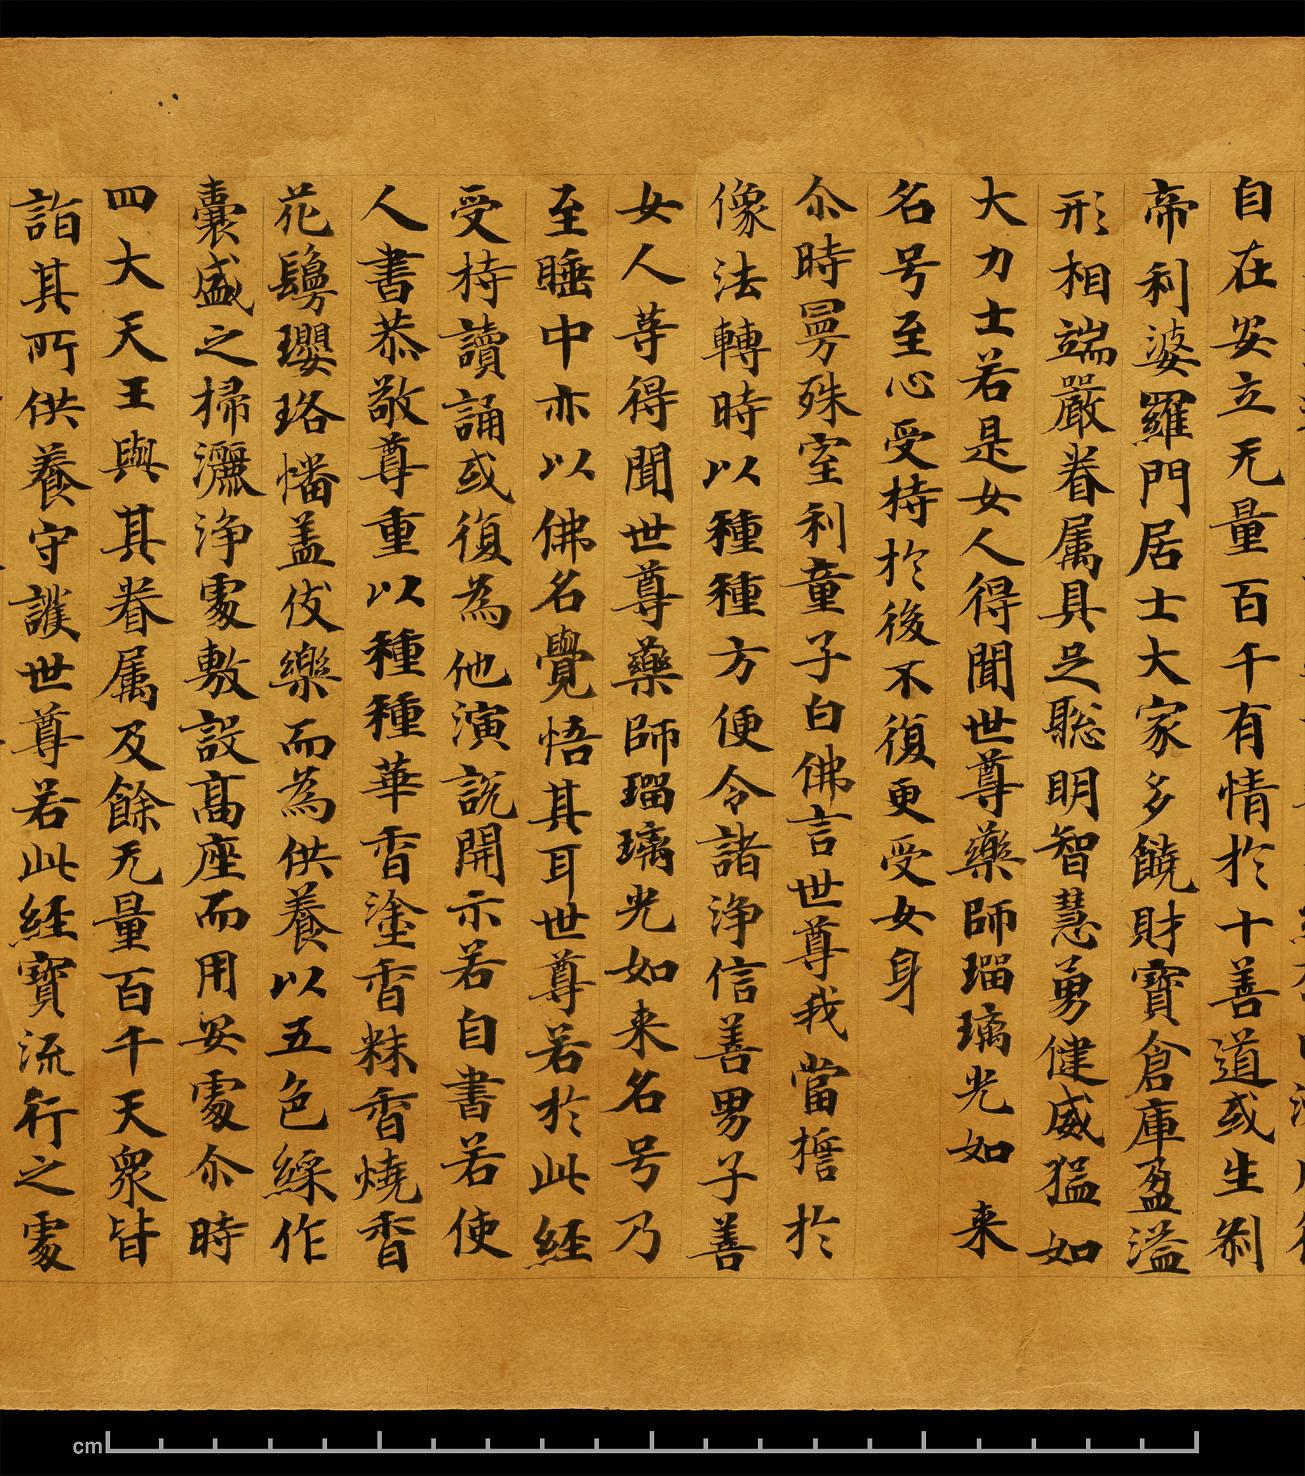 自在安立无量百千有情於十善道或生刹
帝利婆羅門居士大家多饒財寶倉庫盈溢
形相端嚴眷属具足聡明智慧勇健威猛如
大力士若是女人得聞世尊藥師瑠璃光如来
名号至心受持於後不復更受女身
尒時曼殊室利童子白佛言世尊我當擔於
像法轉時以種種方便令諸浄信善男子善
女人等得聞世尊藥師瑠璃光如来名号乃
至睡中亦以佛名覺悟其耳世尊若於此經
受持讀誦或復為他演說開示若自書若使
人書恭敬尊重以種種華香塗香粖香燒香
花鬘瓔珞幡盖伎樂而為供養以五色綵作
囊盛之掃灑浄處敷設髙座而用安處尒時
四大天王與其眷属及餘无量百千天衆皆
詣其所供養守護世尊若此經寶流行之處
cm